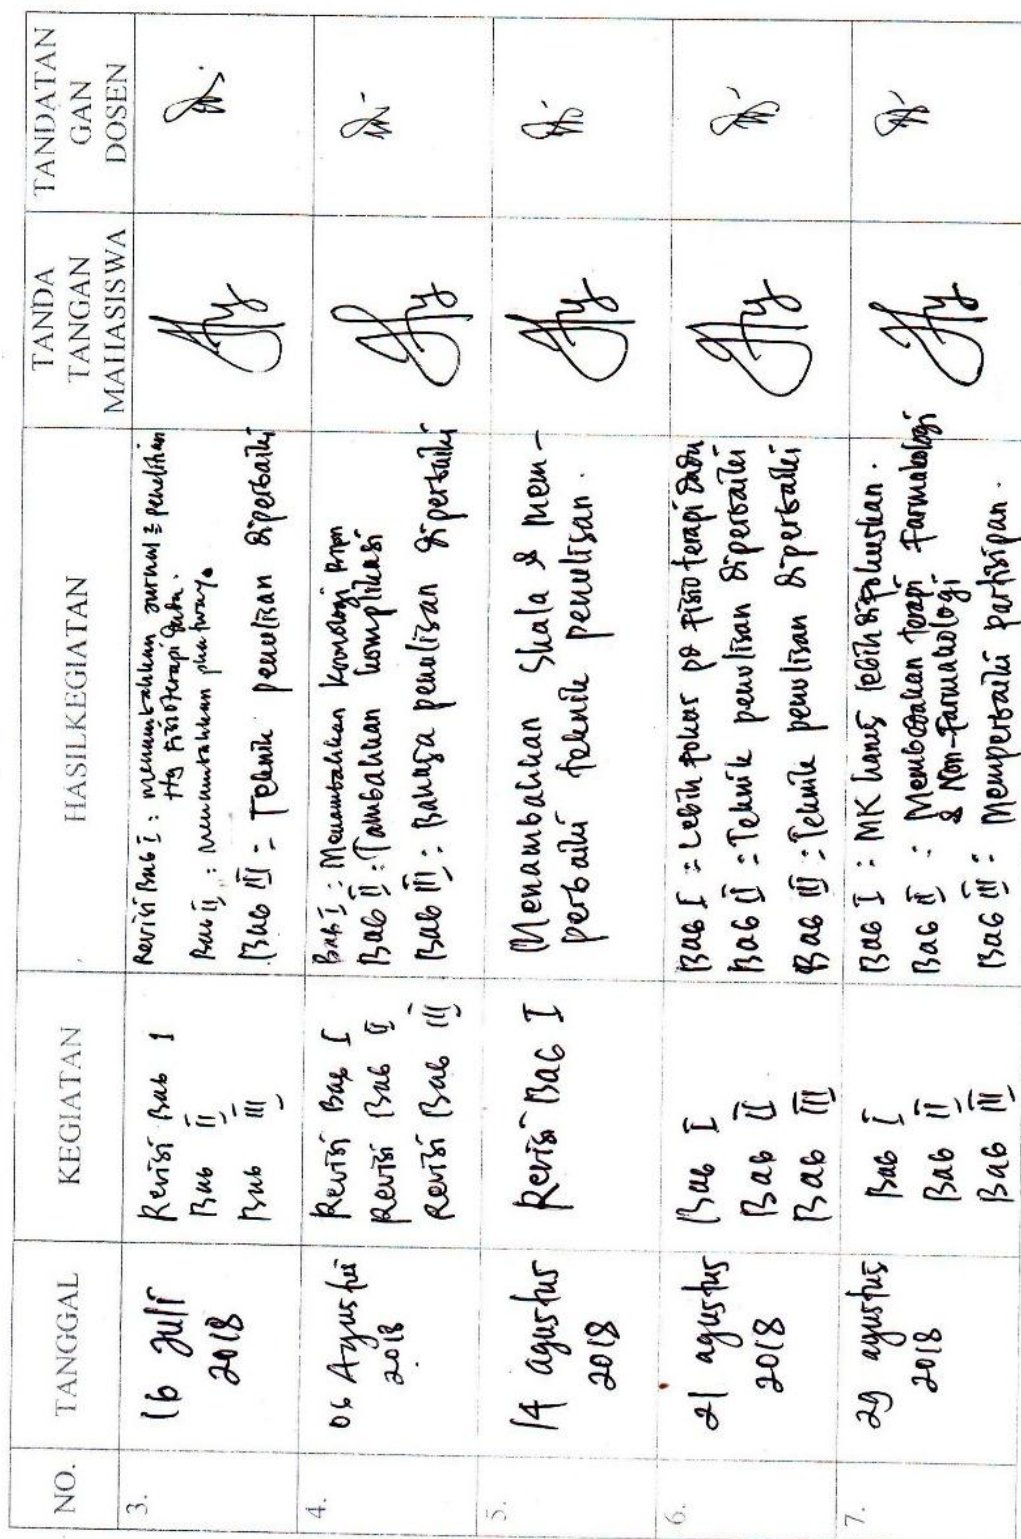 NO.
TANGGAL
KEGIATAN
HASILKEGIATAN
TANDA
TANGAN
MAHASISWA
TANDATAN
GAN
DOSEN
3.
16 Juli
2018
Revisi Bab 1
Bab II
Bab III
Revisi Bab I : menambahkan Jurnal2 penelitian
ttg Fisioterapi dada.
Bab II : menambahkan phatway.
Bab III : Teknik penulisan diperbaiki
4.
06 Agustus
2018
Revisi Bab I
Revisi Bab II
Revisi Bab III
Bab I : Menambahkan kronologi
Bab II : Tambahkan komplikasi
Bab III : Bahasa penulisan diperbaiki
5.
14 agustus
2018
Revisi Bab I
Menambahkan Skala & mem-
perbaiki teknik penulisan.
6.
21 agustus
2018
Bab I
Bab II
Bab III
Bab I : Lebih fokus pd fisioterapi dada
Bab II : Teknik penulisan diperbaiki
Bab III : Teknik penulisan diperbaiki
7.
29 agustus
2018
Bab I
Bab II
Bab III
Bab I : MK harus lebih difokuskan.
Bab II : Membedakan terapi Farmakologi
& Non-Farmakologi
Bab III : Memperbaiki partisipan.